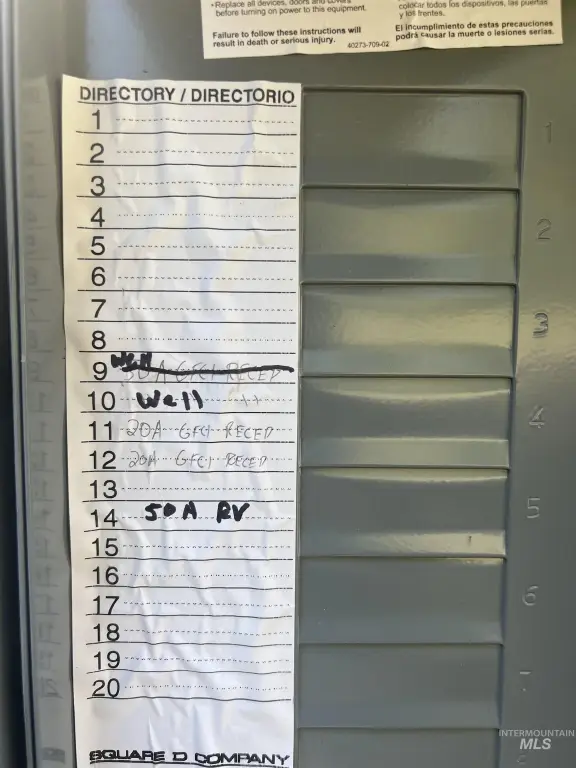 •Replace all devices, doors and covers
before turning on power to this equipment.
Failure to follow these instructions will
result in death or serious injury.
40273-709-02
colocar todos los dispositivos, las puertas
y los frentes.
El incumplimiento de estas precauciones
podrá causar la muerte o lesiones serias.
DIRECTORY / DIRECTORIO
1
2
3
4
5
6
7
8
9 Well 50A GFCI RECED
10 Well
11 20A GFCI RECED
12 20A GFCI RECED
13
14 50A RV
15
16
17
18
19
20
SQUARE D COMPANY
1
2
3
4
5
6
7
INTERMOUNTAIN
MLS